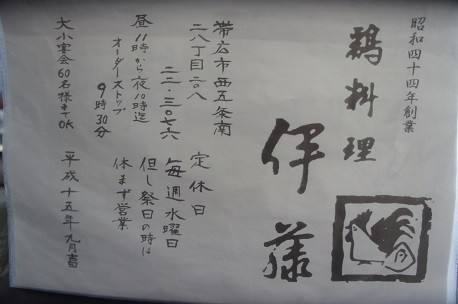 昭和四十四年創業
鶏料理
伊藤
帯広市西五条南
二八丁目二ノ八
二二-三〇七六
昼11時から夜10時迄
オーダーストップ
9時30分
大小宴会60名様までOK
定休日
毎週水曜日
但し祭日の時は
休まず営業
平成十五年九月吉日